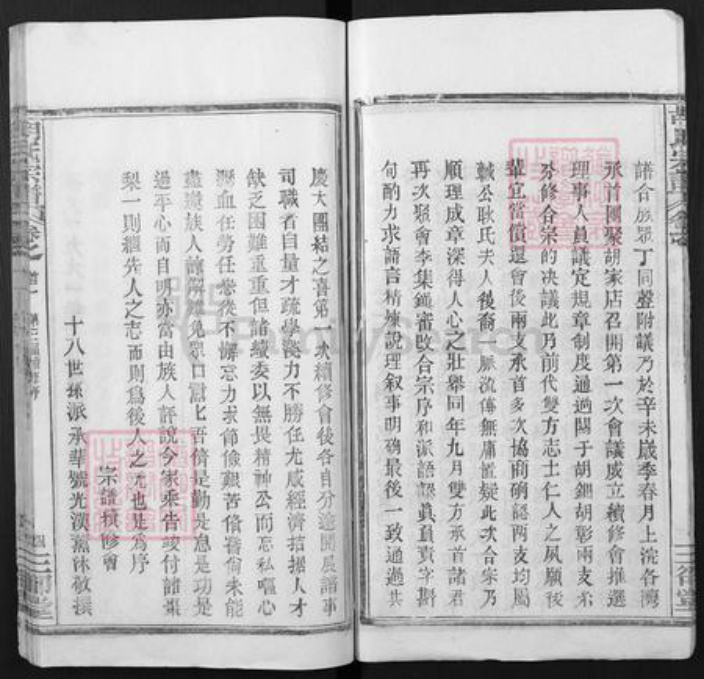 譜合族眾丁同聲附議乃於辛未歲季春月上浣各灣
承首團聚胡家店召開第一次會議成立續修會推選
理事人員議定規章制度通過關于胡鈿胡彰兩支系
分修合宗的決議此乃前代雙方志士仁人之夙願後
輩宜當償還會後兩支承首多次協商確認兩支均屬
誠公耿氏夫人後裔一脈流傳無庸置疑此次合宗乃
順理成章深得人心之壯舉同年九月雙方承首諸君
再次聚會李集鎮審改合宗序和派語認真負責字斟
句酌力求語言精煉說理叙事明确最後一致通過共
慶大團結之喜第一次續修會後各自分途開展譜事
司職者自量才疏學淺力不勝任尤感經濟拮据人才
缺乏困難重重但諸績委以無畏精神公而忘私嘔心
瀝血任勞任怨從不懈忘力求節儉艱苦備嘗尚未能
盡遂族人諒解難免眾口當此吾儕是勤是息是功是
過平心而自明亦當由族人評說今家乘告竣付諸棗
梨一則繼先人之志而則為後人之先也是為序
宗譜續修會
十八世孫派承華號光漢薰沐敬撰
三卻堂
三卻堂
FamilySearch